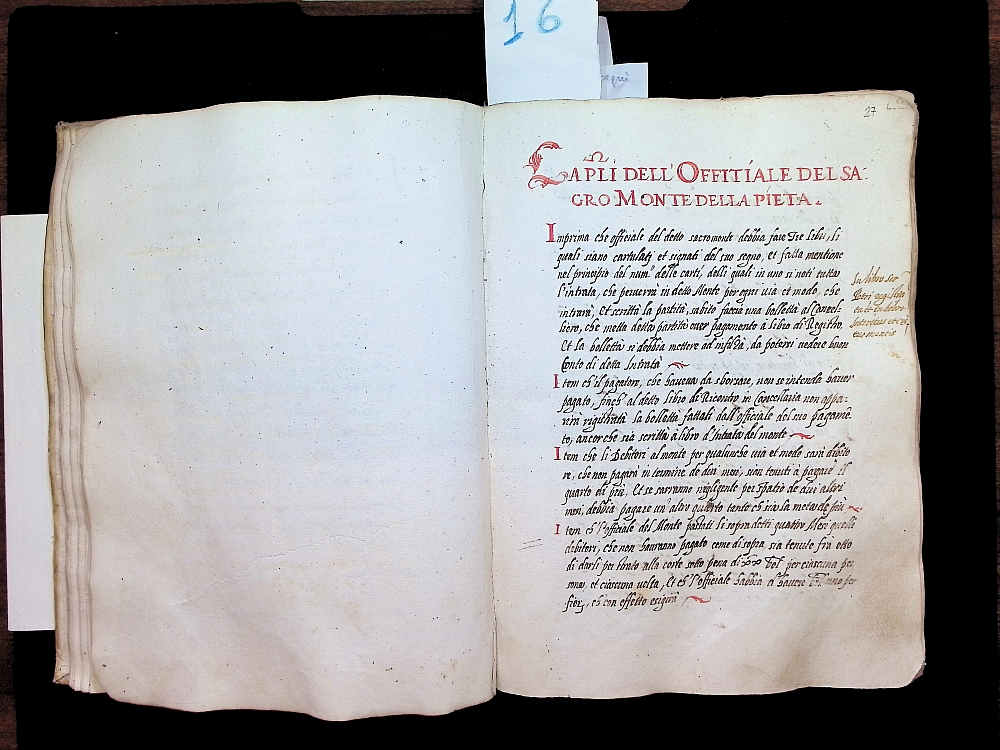 16
27
CAPLI DELL' OFFITIALE DEL SA
GRO MONTE DELLA PIETA.
Inprima che officiale del detto sacromonte debbia fare Tre libri, li
quali siano cartulatj et signati del suo segno, et fatta mentione
nel principio del num.º delle carti, delli quali in uno si noti tutta
l'intrata, che perverrà in detto Monte per ogni via et modo, che
intrarà, Et scritta la partita, subito faccia una bolletta al Cancel-
liero, che metta detta partita over pagamento à libro di Registro
Et la bolletta si debbia mettere ad infilza, da poterci vedere buon
Conto di detta Intrata
Item ch'il pagatore, che haveva da sborsare, non se intenda haver
pagato, finch' al detto libro di Ricontro in Cancellaria non appa-
rirà rigistrata la bolletta fattali dall'officiale del suo pagamē
to, ancorche sia scritta à libro d'Intrata del monte
Item che li Debitori al monte per qualunche via et modo sarà debito
re, che non pagarà in termine de dui mesi, sian tenuti à pagare il
quarto di più, Et se sarranno negligente per spatio de dui altri
mesi, debbia pagare un' altro quarto tanto ch' sia la metà de più
Item ch' l'officiale del Monte passati li sopradetti quattro Mesi quelli
debitori, che non havranno pagato come di sopra, sia tenuto frà otto
di darli per tante alla corte sotto pena di per ciascuna per
sona, et ciascuna volta, Et ch' l'officiale habbia à havere uno per
fior, ch' con effetto esigirà
In libro
registra
ta et in libro
Introitus